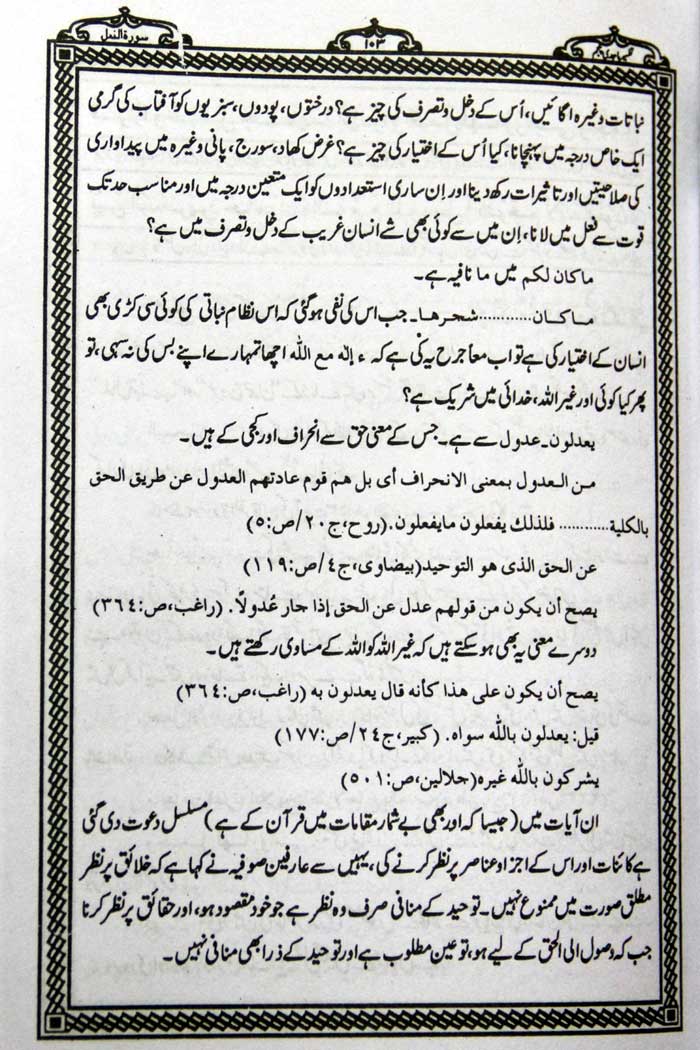 سورة النمل
۱۰۳
نباتات وغیرہ اگائیں، اُس کے دخل و تصرف کی چیز ہے؟ درختوں، پودوں، سبزیوں کو آفتاب کی گرمی
ایک خاص درجہ میں پہنچانا، کیا اُس کے اختیار کی چیز ہے؟ غرض کھاد، سورج، پانی وغیرہ میں پیداواری
کی صلاحیتیں اور تاثیرات رکھ دینا اور اِن ساری استعدادوں کو ایک متعین درجہ میں اور مناسب حد تک
قوت سے فعل میں لانا، اِن میں سے کوئی بھی شے انسان غریب کے دخل و تصرف میں ہے؟
ماکان لکم میں ما نافیہ ہے۔
ماکان............شجرھا۔ جب اس کی نفی ہوگئی کہ اس نظام نباتی کی کوئی سی کڑی بھی
انسان کے اختیار کی ہے تو اب معاً جرح یہ کی ہے کہ ءالٰہ مع اللہ اچھا تمہارے اپنے بس کی نہ سہی، تو
پھر کیا کوئی اور غیر اللہ، خدائی میں شریک ہے؟
یعدلون۔ عدول سے ہے۔ جس کے معنی حق سے انحراف اور کجی کے ہیں۔
من العدول بمعنی الانحراف أی بل ھم قوم عادتھم العدول عن طریق الحق
بالکلیة.......... فلذلك یفعلون مایفعلون. (روح، ج۲۰/ص:۵)
عن الحق الذی ھو التوحید (بیضاوی، ج۴/ص:۱۱۹)
یصح أن یکون من قولھم عدل عن الحق إذا جار عُدولاً. (راغب، ص:۳۶۴)
دوسرے معنی یہ بھی ہوسکتے ہیں کہ غیر اللہ کو اللہ کے مساوی رکھتے ہیں۔
یصح أن یکون علی ھذا کأنه قال یعدلون به (راغب، ص:۳۶۴)
قیل: یعدلون باللہ سواہ. (کبیر، ج۲۴/ص:۱۷۷)
یشرکون باللہ غیرہ (جلالین، ص:۵۰۱)
ان آیات میں (جیسا کہ اور بھی بے شمار مقامات میں قرآن کے ہے) مسلسل دعوت دی گئی
ہے کائنات اور اس کے اجزاو عناصر پر نظر کرنے کی، یہیں سے عارفین صوفیہ نے کہا ہے کہ خلائق پر نظر
مطلق صورت میں ممنوع نہیں۔ توحید کے منافی صرف وہ نظر ہے جو خود مقصود ہو، اور حقائق پر نظر کرنا
جب کہ وصول الی الحق کے لیے ہو، تو عین مطلوب ہے اور توحید کے ذرا بھی منافی نہیں۔